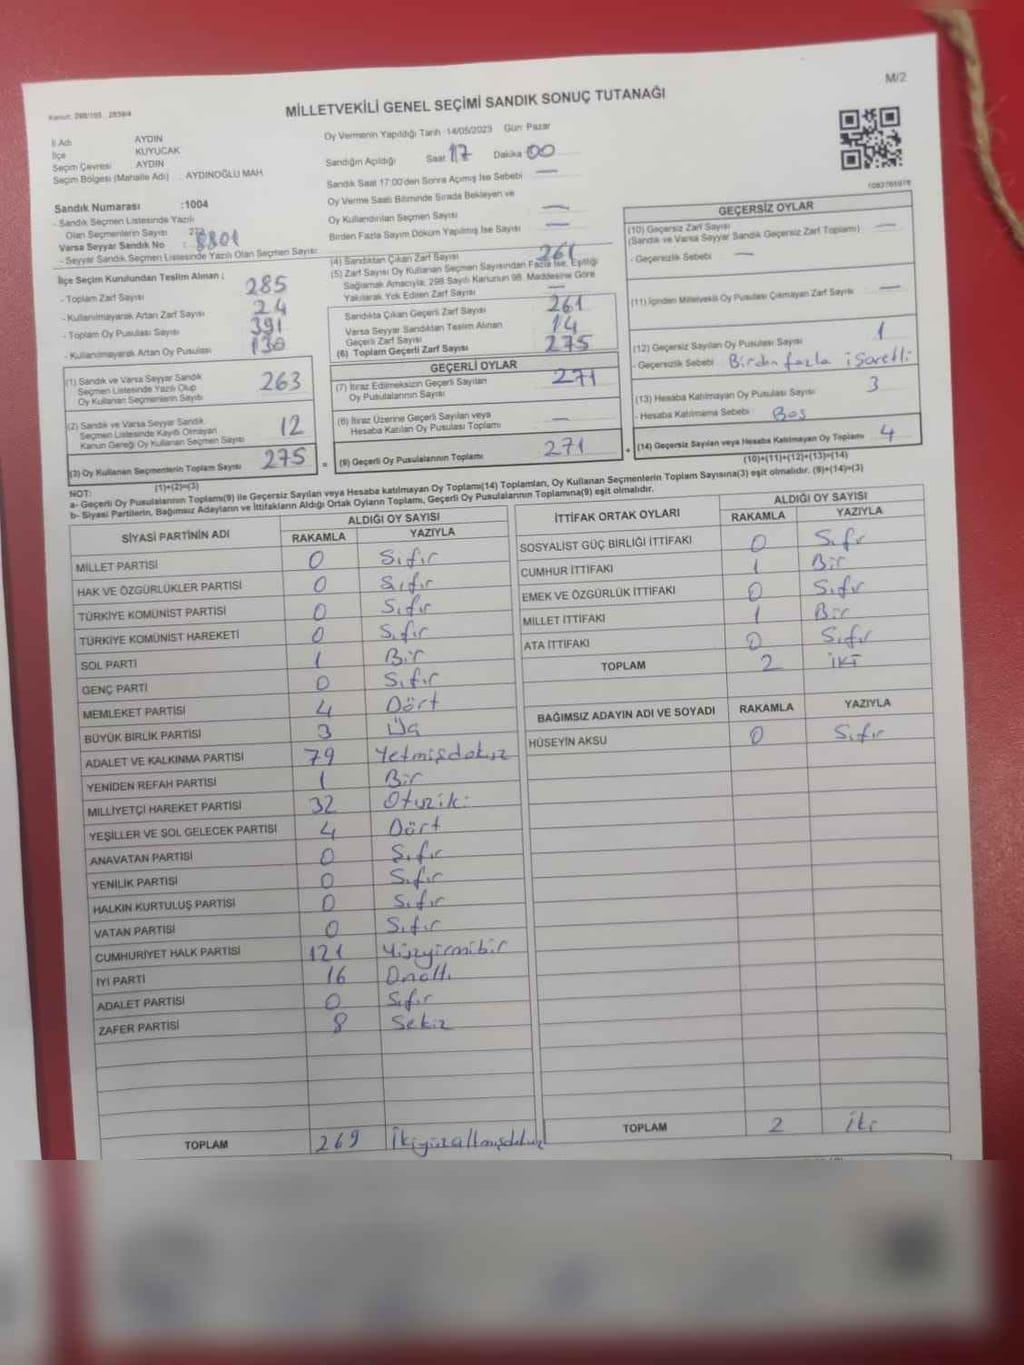 M/2
Kanun: 298/105 , 2839/4
MİLLETVEKİLİ GENEL SEÇİMİ SANDIK SONUÇ TUTANAĞI
İl Adı AYDIN
İlçe KUYUCAK
Seçim Çevresi AYDIN
Seçim Bölgesi (Mahalle Adı) : AYDINOĞLU MAH
Sandık Numarası :1004
- Sandık Seçmen Listesinde Yazılı
Olan Seçmenlerin Sayısı
Varsa Seyyar Sandık No : 8801
- Seyyar Sandık Seçmen Listesinde Yazılı Olan Seçmen Sayısı:
İlçe Seçim Kurulundan Teslim Alınan :
- Toplam Zarf Sayısı 285
- Kullanılmayarak Artan Zarf Sayısı 24
- Toplam Oy Pusulası Sayısı 391
- Kullanılmayarak Artan Oy Pusulası
(1) Sandık ve Varsa Seyyar Sandık
Seçmen Listesinde Yazılı Olup
Oy Kullanan Seçmenlerin Sayısı 263
(2) Sandık ve Varsa Seyyar Sandık
Seçmen Listesinde Kayıtlı Olmayan
Kanun Gereği Oy Kullanan Seçmen Sayısı 12
(3) Oy Kullanan Seçmenlerin Toplam Sayısı 275
(1)+(2)=(3)
Oy Vermenin Yapıldığı Tarih :14/05/2023 Gün: Pazar
Sandığın Açıldığı Saat 17 Dakika 00
Sandık Saat 17:00'den Sonra Açılmış İse Sebebi —
Oy Verme Saati Bitiminde Sırada Bekleyen ve
Oy Kullandırılan Seçmen Sayısı —
Birden Fazla Sayım Döküm Yapılmış İse Sayısı —
(4) Sandıktan Çıkan Zarf Sayısı 261
(5) Zarf Sayısı Oy Kullanan Seçmen Sayısından Fazla İse, Eşitliği
Sağlamak Amacıyla; 298 Sayılı Kanunun 98. Maddesine Göre
Yakılarak Yok Edilen Zarf Sayısı —
Sandıkta Çıkan Geçerli Zarf Sayısı 261
Varsa Seyyar Sandıktan Teslim Alınan
Geçerli Zarf Sayısı 14
(6) Toplam Geçerli Zarf Sayısı 275
GEÇERLİ OYLAR
(7) İtiraz Edilmeksizin Geçerli Sayılan
Oy Pusulalarının Sayısı 271
(8) İtiraz Üzerine Geçerli Sayılan veya
Hesaba Katılan Oy Pusulası Toplamı —
= (9) Geçerli Oy Pusulalarının Toplamı 271
GEÇERSİZ OYLAR
(10) Geçersiz Zarf Sayısı
(Sandık ve Varsa Seyyar Sandık Geçersiz Zarf Toplamı) —
- Geçersizlik Sebebi : —
(11) İçinden Milletvekili Oy Pusulası Çıkmayan Zarf Sayısı —
(12) Geçersiz Sayılan Oy Pusulası Sayısı 1
- Geçersizlik Sebebi : Birden fazla işaretli
(13) Hesaba Katılmayan Oy Pusulası Sayısı 3
- Hesaba Katılmama Sebebi : Boş
+ (14) Geçersiz Sayılan veya Hesaba Katılmayan Oy Toplamı 4
(10)+(11)+(12)+(13)=(14)
NOT:
a- Geçerli Oy Pusulalarının Toplamı(9) ile Geçersiz Sayılan veya Hesaba katılmayan Oy Toplamı(14) Toplamları, Oy Kullanan Seçmenlerin Toplam Sayısına(3) eşit olmalıdır. (9)+(14)=(3)
b- Siyasi Partilerin, Bağımsız Adayların ve İttifakların Aldığı Ortak Oyların Toplamı, Geçerli Oy Pusulalarının Toplamına(9) eşit olmalıdır.
SİYASİ PARTİNİN ADI ALDIĞI OY SAYISI
RAKAMLA YAZIYLA
MİLLET PARTİSİ 0 Sıfır
HAK VE ÖZGÜRLÜKLER PARTİSİ 0 Sıfır
TÜRKİYE KOMÜNİST PARTİSİ 0 Sıfır
TÜRKİYE KOMÜNİST HAREKETİ 0 Sıfır
SOL PARTİ 1 Bir
GENÇ PARTİ 0 Sıfır
MEMLEKET PARTİSİ 4 Dört
BÜYÜK BİRLİK PARTİSİ 3 Üç
ADALET VE KALKINMA PARTİSİ 79 Yetmişdokuz
YENİDEN REFAH PARTİSİ 1 Bir
MİLLİYETÇİ HAREKET PARTİSİ 32 Otuziki
YEŞİLLER VE SOL GELECEK PARTİSİ 4 Dört
ANAVATAN PARTİSİ 0 Sıfır
YENİLİK PARTİSİ 0 Sıfır
HALKIN KURTULUŞ PARTİSİ 0 Sıfır
VATAN PARTİSİ 0 Sıfır
CUMHURİYET HALK PARTİSİ 121 Yüzyirmibir
İYİ PARTİ 16 Onaltı
ADALET PARTİSİ 0 Sıfır
ZAFER PARTİSİ 8 Sekiz
TOPLAM 269 İkiyüzaltmışdokuz
İTTİFAK ORTAK OYLARI ALDIĞI OY SAYISI
RAKAMLA YAZIYLA
SOSYALİST GÜÇ BİRLİĞİ İTTİFAKI 0 Sıfır
CUMHUR İTTİFAKI 1 Bir
EMEK VE ÖZGÜRLÜK İTTİFAKI 0 Sıfır
MİLLET İTTİFAKI 1 Bir
ATA İTTİFAKI 0 Sıfır
TOPLAM 2 İKİ
BAĞIMSIZ ADAYIN ADI VE SOYADI RAKAMLA YAZIYLA
HÜSEYİN AKSU 0 Sıfır
TOPLAM 2 İki